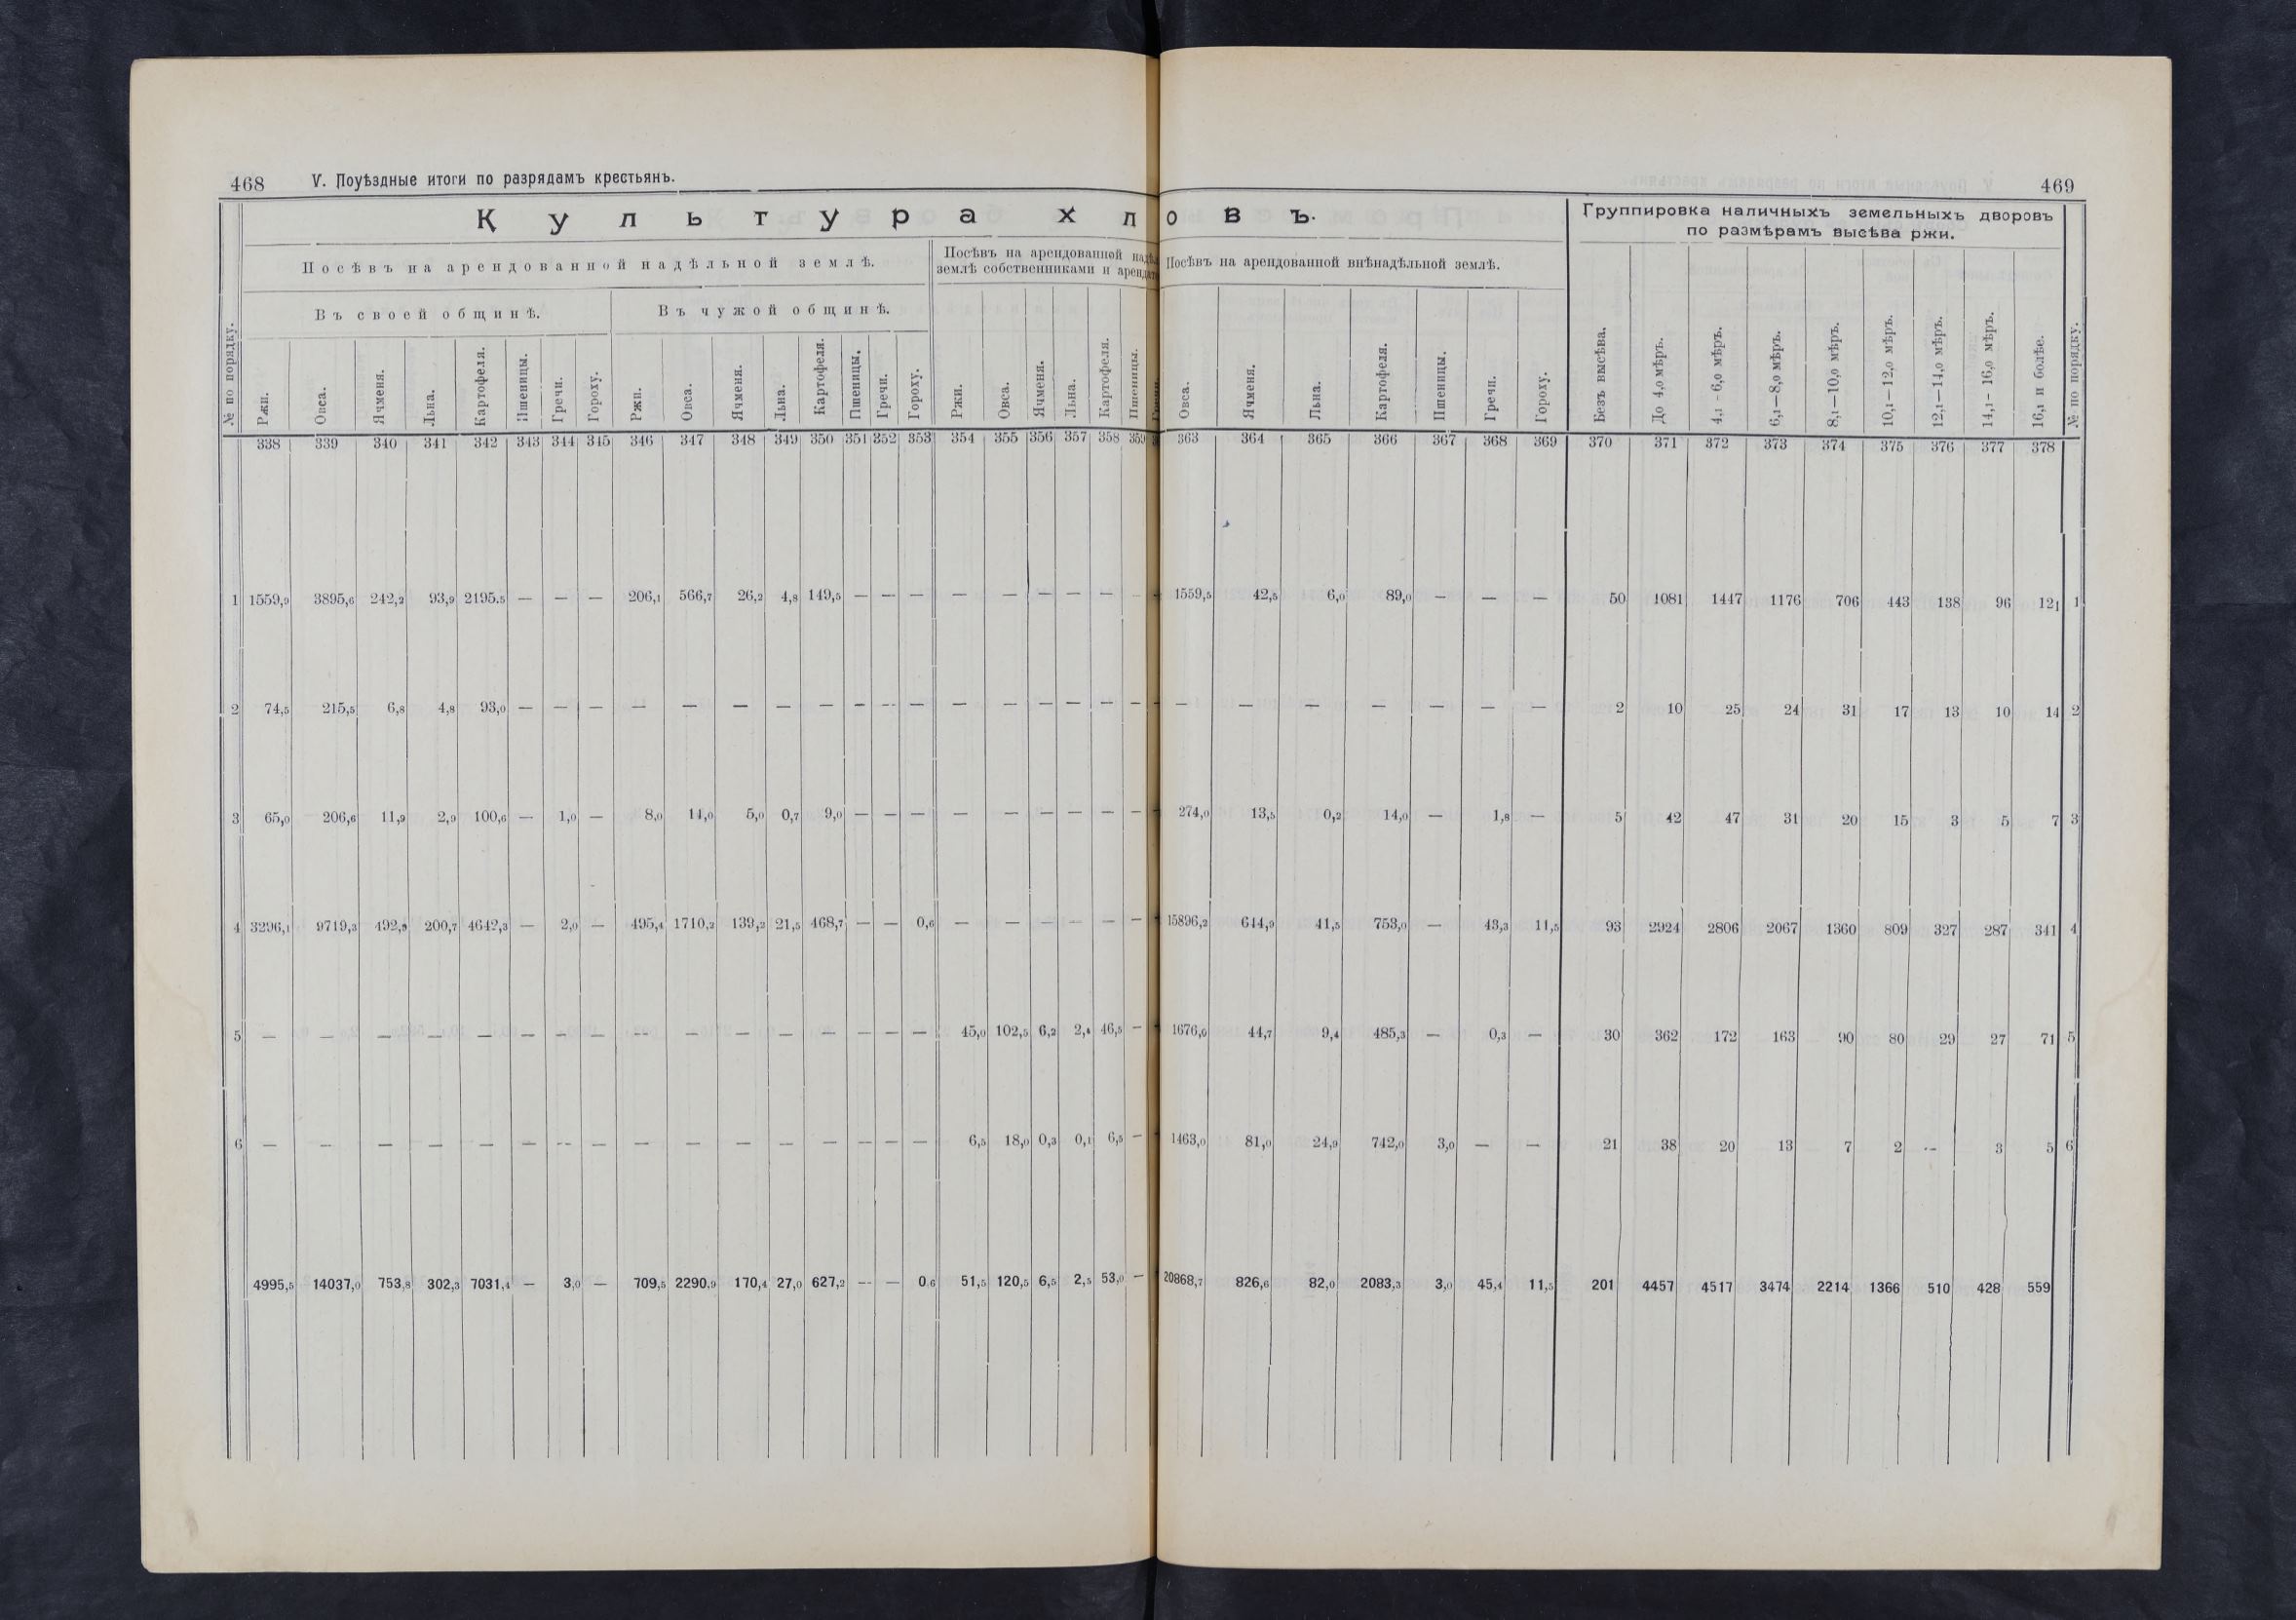 468 V. Поуѣздные итоги по разрядамъ крестьянъ. 469
Культура хл овъ.
Группировка наличныхъ земельныхъ дворовъ
по размѣрамъ высѣва ржи.
Посѣвъ на арендованной надѣльной землѣ.
Посѣвъ на арендованной
землѣ собственниками и
Посѣвъ на арендованной внѣнадѣльной землѣ.
Въ своей общинѣ. Въ чужой общинѣ.
№ по порядку. Ржи. Овса. Ячменя. Льна. Картофеля. Пшеницы. Гречи. Гороху. Ржи. Овса. Ячменя. Льна. Картофеля. Пшеницы. Гречи. Гороху. Ржи. Овса. Ячменя. Льна. Картофеля. Пшеницы. Овса. Ячменя. Льна. Картофеля. Пшеницы. Гречи. Гороху. Безъ высѣва. До 4,0 мѣръ. 4,1 - 6,0 мѣръ. 6,1—8,0 мѣръ. 8,1—10,0 мѣръ. 10,1—12,0 мѣръ. 12,1—14,0 мѣръ. 14,1- 16,0 мѣръ. 16,1 и болѣе. № по порядку.
338 339 340 341 342 343 344 345 346 347 348 349 350 351 352 353 354 355 356 357 358 359 363 364 365 366 367 368 369 370 371 372 373 374 375 376 377 378
1 1559,9 3895,6 242,2 93,9 2195,5 — — — 206,1 566,7 26,2 4,8 149,5 — — — — — — — — — 1559,5 42,5 6,0 89,0 — — — 50 1081 1447 1176 706 443 138 96 121 1
2 74,5 215,5 6,8 4,8 93,0 — — — — — — — — — — — — — — — — — — — — — — — — 2 10 25 24 31 17 13 10 14 2
3 65,0 206,6 11,9 2,9 100,6 — 1,0 — 8,0 14,0 5,0 0,7 9,0 — — — — — — — — — 274,0 13,5 0,2 14,0 — 1,8 — 5 42 47 31 20 15 3 5 7 3
4 3296,1 9719,3 492,9 200,7 4642,3 — 2,0 — 495,4 1710,2 139,2 21,5 468,7 — — 0,6 — — — — — — 15896,2 644,9 41,5 753,0 — 43,3 11,5 93 2924 2806 2067 1360 809 327 287 341 4
5 — — — — — — — — — — — — — — — — 45,0 102,5 6,2 2,4 46,5 — 1676,0 44,7 9,4 485,3 — 0,3 — 30 362 172 163 90 80 29 27 71 5
6 — — — — — — — — — — — — — — — — 6,5 18,0 0,3 0,1 6,5 — 1463,0 81,0 24,9 742,0 3,0 — — 21 38 20 13 7 2 — 3 5 6
4995,5 14037,0 753,8 302,3 7031,4 — 3,0 — 709,5 2290,9 170,4 27,0 627,2 — — 0,6 51,5 120,5 6,5 2,5 53,0 — 20868,7 826,6 82,0 2083,3 3,0 45,4 11,5 201 4457 4517 3474 2214 1366 510 428 559